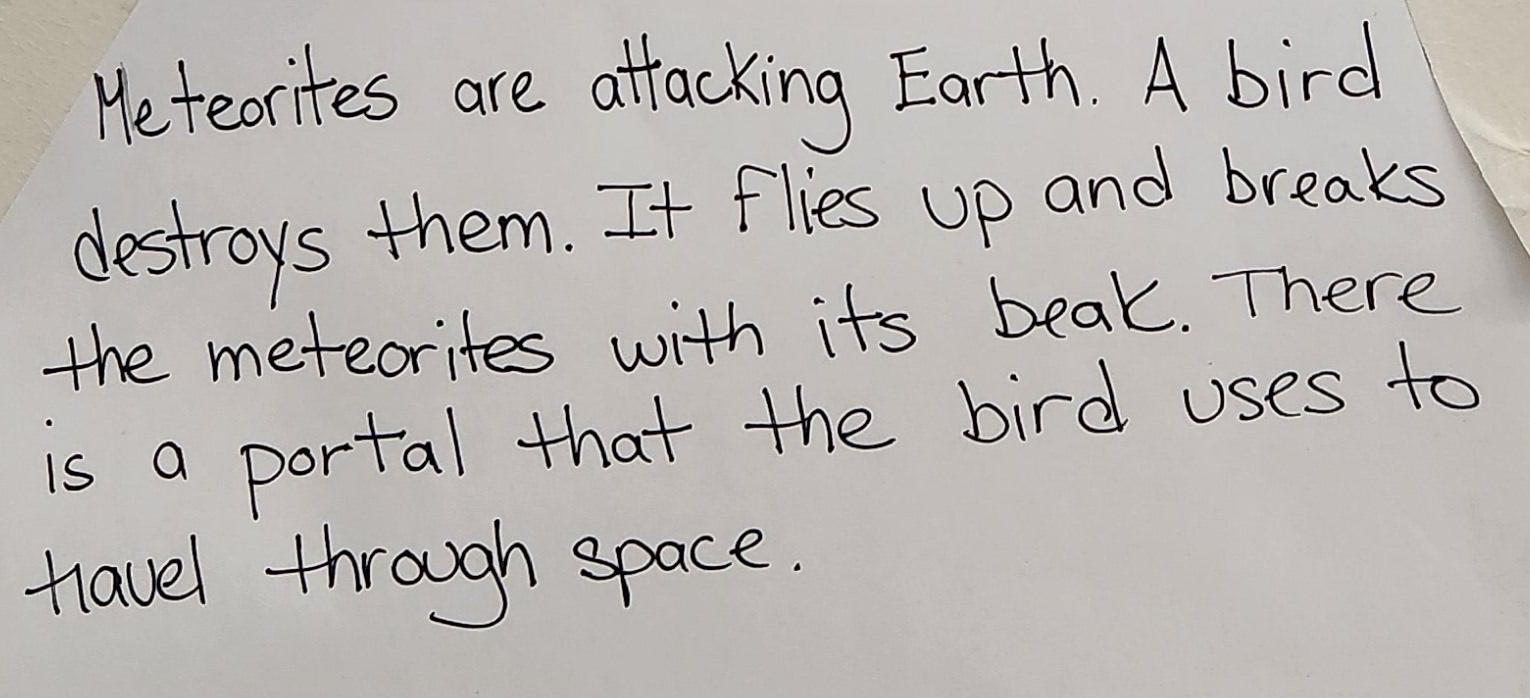 Meteorites are attacking Earth. A bird
destroys them. It flies up and breaks
the meteorites with its beak. There
is a portal that the bird uses to
travel through space.